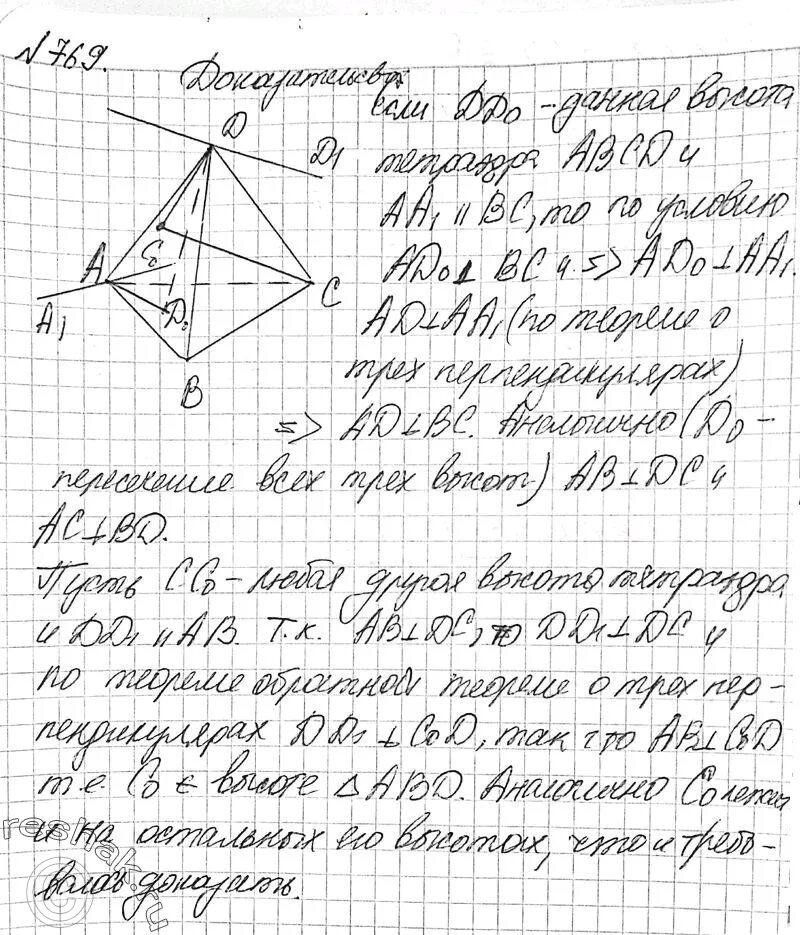 №769.
Доказательство
если DD₀ – данная высота
тетраэдра ABCD и
AA₁ ∥ BC, то по условию
AD₀ ⊥ BC и => AD₀ ⊥ AA₁.
AD ⊥ AA₁ (по теореме о
трех перпендикулярах)
=> AD ⊥ BC. Аналогично (D₀ –
пересечение всех трех высот) AB ⊥ DC и
AC ⊥ BD.
Пусть CC₀ – любая другая высота тетраэдра
и DD₁ ∥ AB. Т.к. AB ⊥ DC, то DD₁ ⊥ DC и
по теореме обратной теореме о трех пер-
пендикулярах DD₁ ⊥ C₀D, так что AB ⊥ C₀D
т.е. C₀ ∈ высоте △ABD. Аналогично C₀ лежит
и на остальных его высотах, что и требо-
валось доказать.
D
D₁
C₀
A
A₁
D₀
C
B
reshak.ru
©